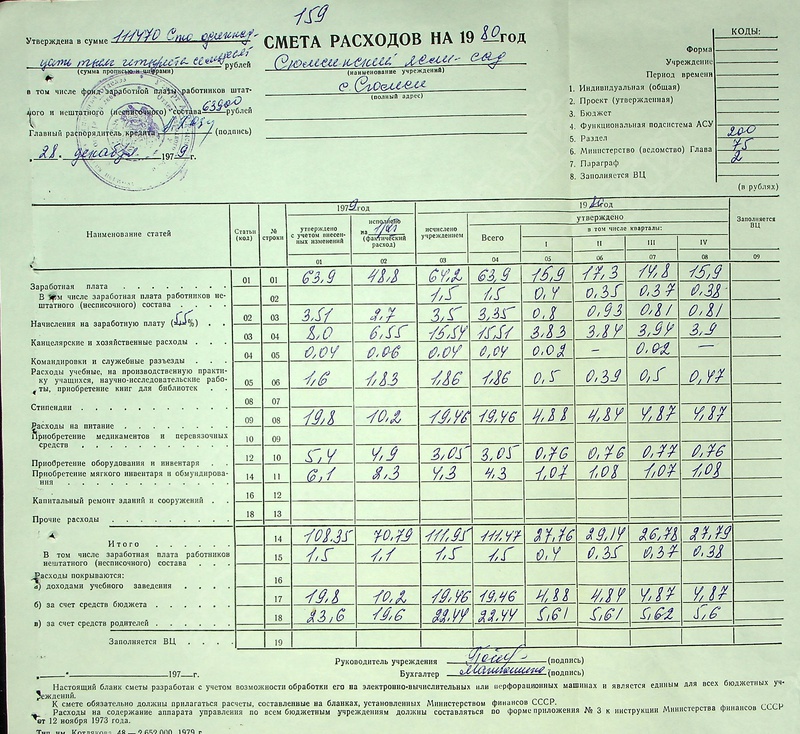 159
Утверждена в сумме 111470 Сто одиннад-
цать тысяч четыреста семьдесят рублей
(сумма прописью и цифрами)
в том числе фонд заработной платы работников штат-
ного и нештатного (несписочного) состава 63900 рублей
Главный распорядитель кредита (подпись)
„28" декабря 1979 г.
СМЕТА РАСХОДОВ НА 1980 ГОД
Сюмсинский ясли-сад
(наименование учреждений)
с. Сюмси
(полный адрес)
КОДЫ:
Форма
Учреждение
Период времени
1. Индивидуальная (общая)
2. Проект (утвержденная)
3. Бюджет
4. Функциональная подсистема АСУ
5. Раздел 200
6. Министерство (ведомство) Глава 75
7. Параграф 2
8. Заполняется ВЦ
(в рублях)
Наименование статей
Статьи (код)
№ строки
1979 год
утверждено с учетом внесенных изменений
исполнено на (фактический расход)
1980 год
исчислено учреждением
утверждено
Всего
в том числе кварталы:
I II III IV
Заполняется ВЦ
01 02 03 04 05 06 07 08 09
Заработная плата 01 01 63,9 48,8 64,2 63,9 15,9 17,3 14,8 15,9
В том числе заработная плата работников не-
штатного (несписочного) состава 02 1,5 1,5 0,4 0,35 0,37 0,38
Начисления на заработную плату (5,5%) 02 03 3,51 2,7 3,5 3,35 0,8 0,93 0,81 0,81
Канцелярские и хозяйственные расходы 03 04 8,0 6,55 15,54 15,51 3,83 3,84 3,94 3,9
Командировки и служебные разъезды 04 05 0,04 0,06 0,04 0,04 0,02 – 0,02 –
Расходы учебные, на производственную практи-
ку учащихся, научно-исследовательские рабо-
ты, приобретение книг для библиотек 05 06 1,6 1,83 1,86 1,86 0,5 0,39 0,5 0,47
Стипендии 08 07
Расходы на питание 09 08 19,8 10,2 19,46 19,46 4,88 4,84 4,87 4,87
Приобретение медикаментов и перевязочных
средств 10 09
Приобретение оборудования и инвентаря 12 10 5,4 4,9 3,05 3,05 0,76 0,76 0,77 0,76
Приобретение мягкого инвентаря и обмундирова-
ния 14 11 6,1 2,3 4,3 4,3 1,07 1,08 1,07 1,08
Капитальный ремонт зданий и сооружений 16 12
Прочие расходы 18 13
Итого 14 108,35 70,79 111,95 111,47 27,76 29,14 26,78 27,79
В том числе заработная плата работников
нештатного (несписочного) состава 15 1,5 1,1 1,5 1,5 0,4 0,35 0,37 0,38
Расходы покрываются:
а) доходами учебного заведения 16
б) за счет средств бюджета 17 19,8 10,2 19,46 19,46 4,88 4,84 4,87 4,87
в) за счет средств родителей 18 23,6 19,6 22,44 22,44 5,61 5,61 5,62 5,6
Заполняется ВЦ 19
Руководитель учреждения (подпись)
Бухгалтер (подпись)
„ " 197 г.
Настоящий бланк сметы разработан с учетом возможности обработки его на электронно-вычислительных или перфорационных машинах и является единым для всех бюджетных уч-
реждений.
К смете обязательно должны прилагаться расчеты, составленные на бланках, установленных Министерством финансов СССР.
Расходы на содержание аппарата управления по всем бюджетным учреждениям должны составляться по форме приложения № 3 к инструкции Министерства финансов СССР
от 12 ноября 1973 года.
Тип. им. Котлякова. 48—2.652.000. 1979 г.